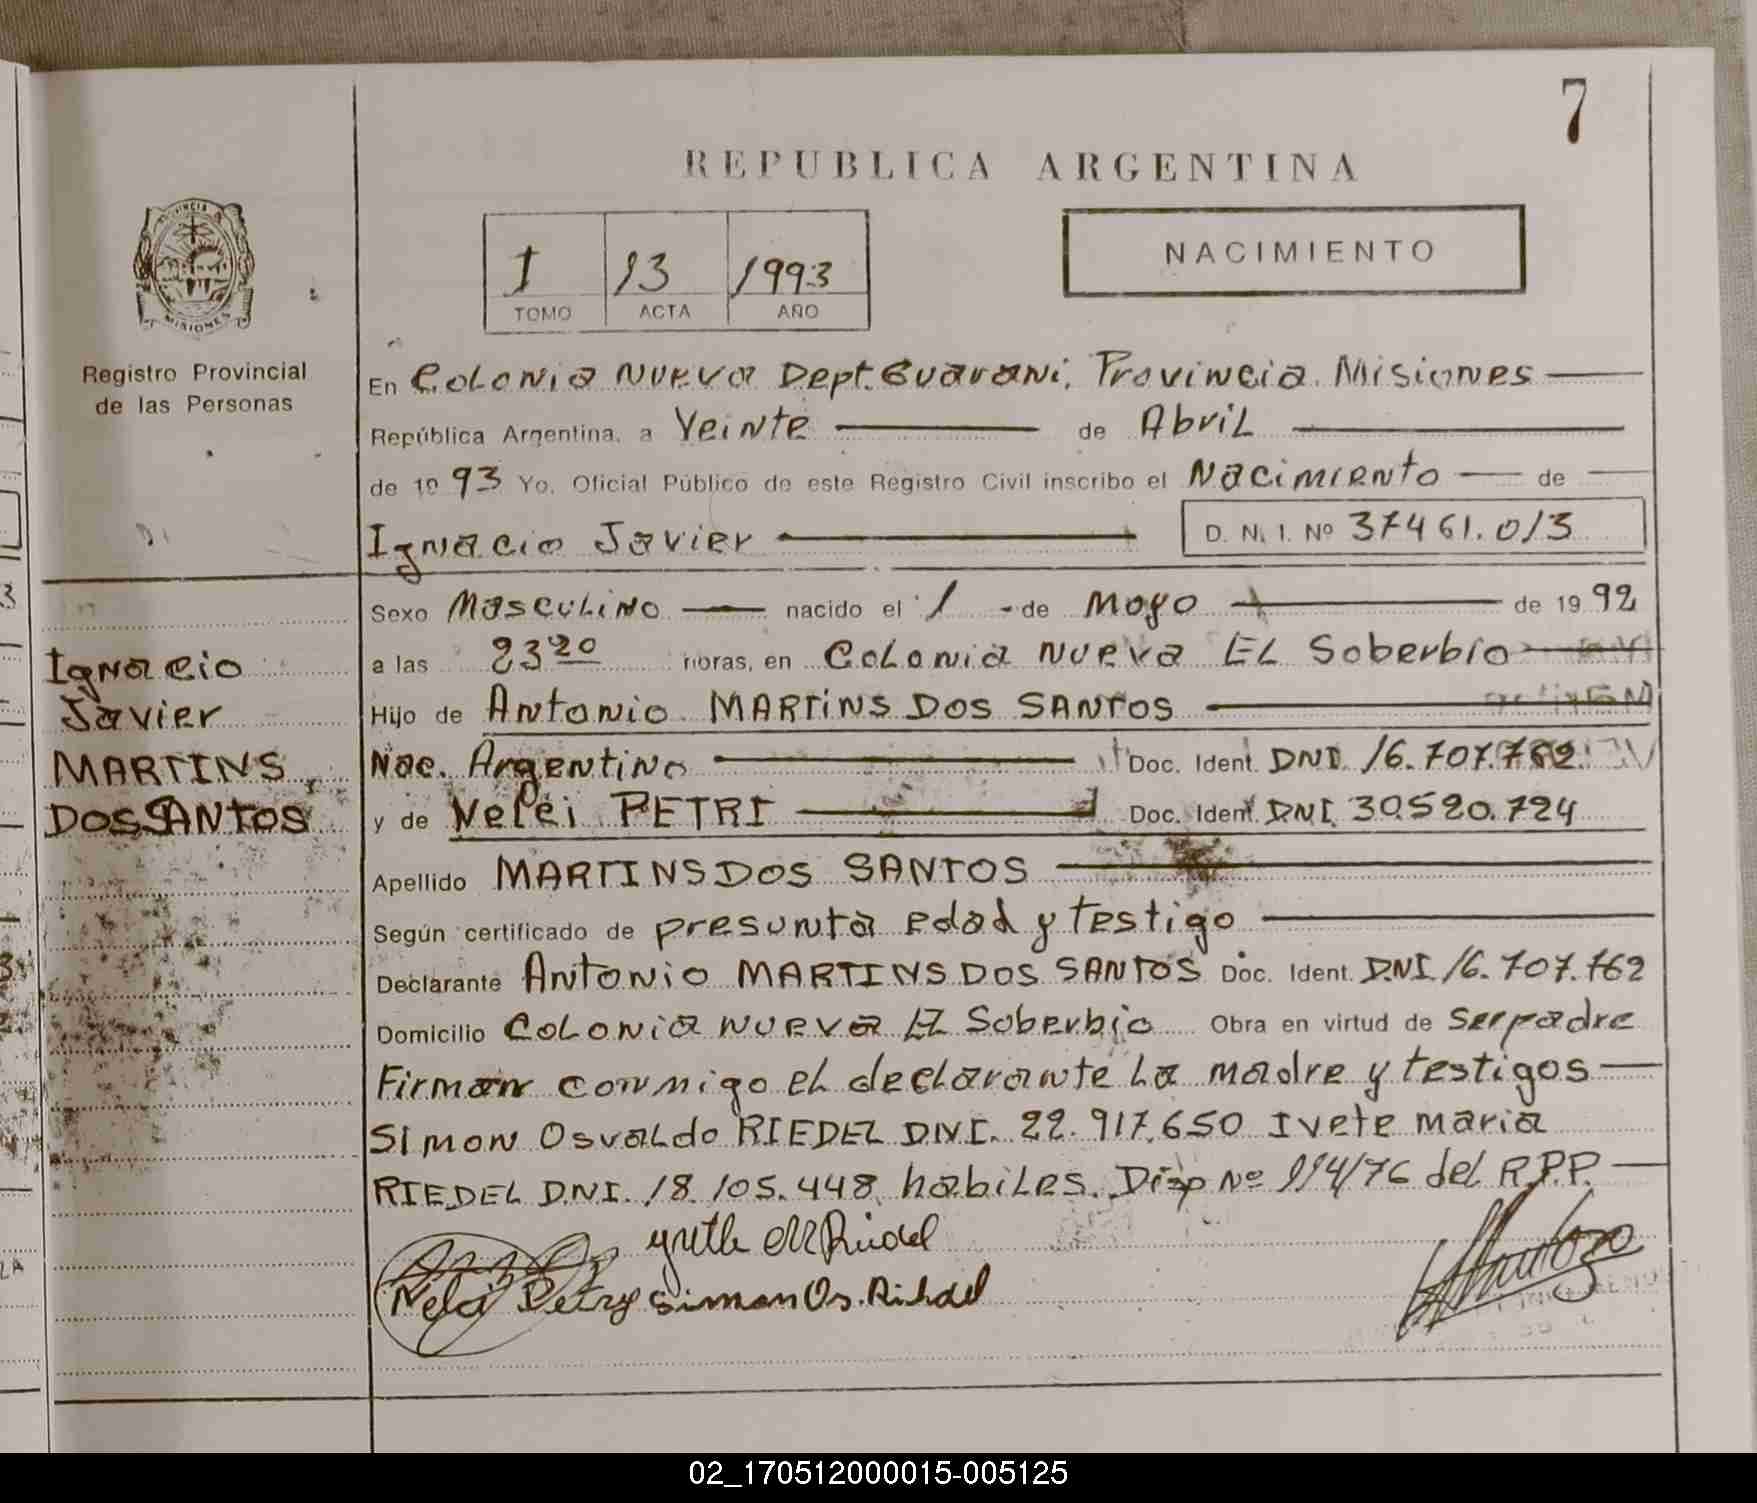 7
REPUBLICA ARGENTINA
PROVINCIA DE
MISIONES
Registro Provincial
de las Personas
I 13 1993
TOMO ACTA AÑO
NACIMIENTO
En Colonia Nueva Dept. Guarani, Provincia Misiones
República Argentina, a Veinte de Abril
de 19 93 Yo, Oficial Público de este Registro Civil inscribo el Nacimiento de
Ignacio Javier D. N. I. Nº 37461.013
Sexo Masculino nacido el 1 de Mayo de 19 92
a las 23 20 horas, en Colonia Nueva EL Soberbio
Hijo de Antonio MARTINS DOS SANTOS
Nac. Argentino Doc. Ident. DNI. 16.707.762
y de Nelei PETRI Doc. Ident. DNI. 30520.724
Apellido MARTINS DOS SANTOS
Según certificado de presunta edad y testigo
Declarante Antonio MARTINS DOS SANTOS Doc. Ident. DNI. 16.707.762
Domicilio Colonia Nueva EL Soberbio Obra en virtud de ser padre
Firman conmigo el declarante La madre y testigos
Simon Osvaldo RIEDEL DNI. 22.917.650 Ivete maria
RIEDEL D.N.I. 18.105.448 habiles. Disp Nº 114/76 del R.P.P.
Ignacio
Javier
MARTINS
DOS SANTOS
Nelei Petry Simon Os.
02_170512000015-005125